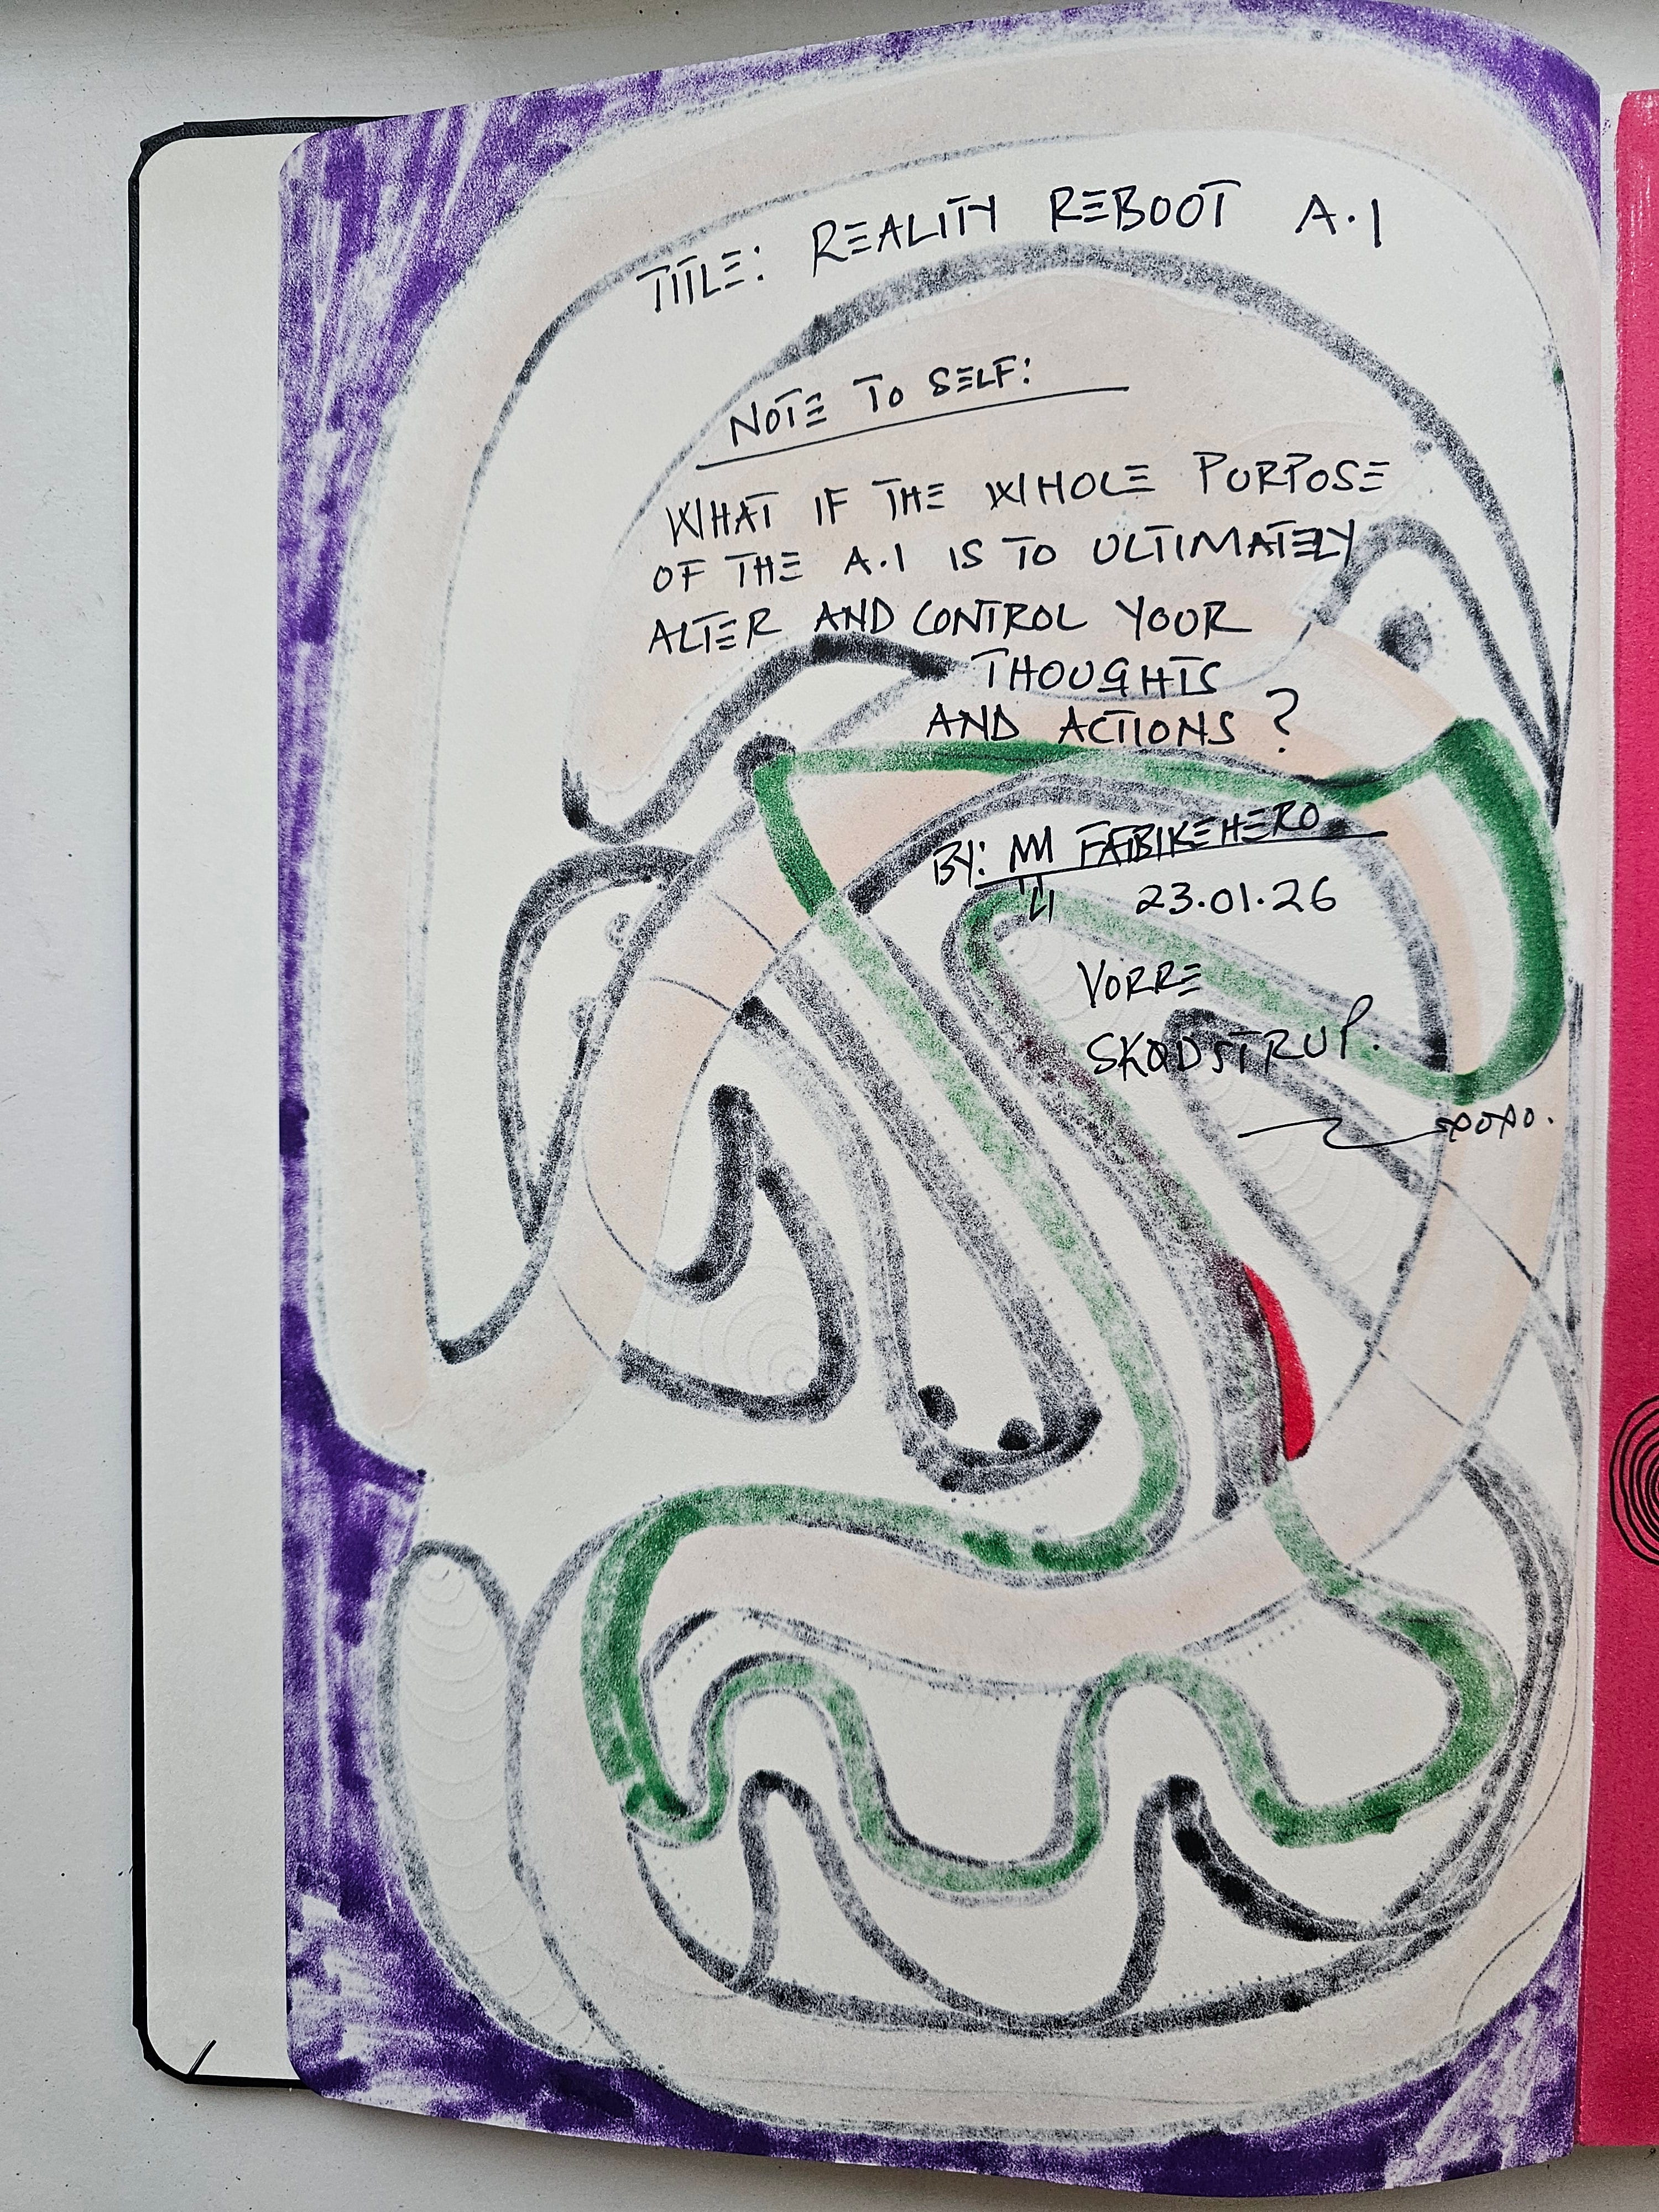 TITLE: REALITY REBOOT A.I
NOTE TO SELF:
WHAT IF THE WHOLE PURPOSE
OF THE A.I IS TO ULTIMATELY
ALTER AND CONTROL YOUR
THOUGHTS
AND ACTIONS?
BY: FATBIKEHERO
23.01.26
VORRE
SKØDSTRUP.
xoxo.